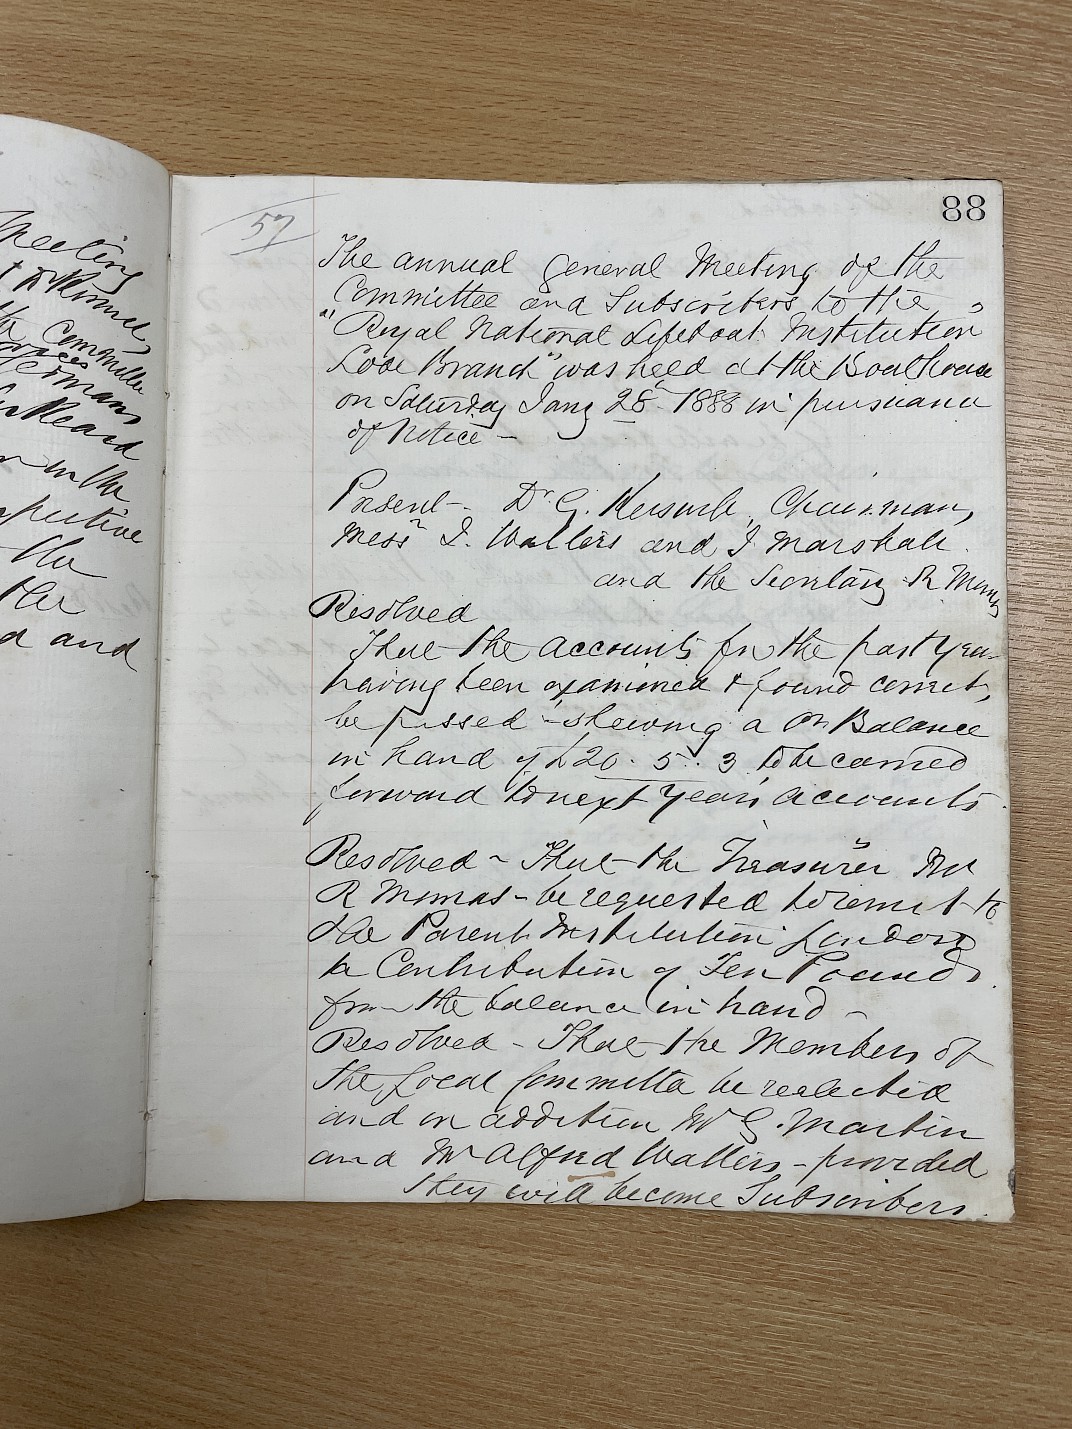 Meeting
Committee
Heard
in the
the
the
and
88
57
The annual General Meeting of the
Committee and Subscribers to the
"Royal National Lifeboat Institution"
Looe Branch" was held at the Boathouse
on Saturday Jany 28th 1888 in pursuance
of Notice -
Present - Dr. G. Kerswill, Chairman,
Messrs I. Watters and J Marshall
and the Secretary R Momas
Resolved
That the Accounts for the past year
having been examined & found correct,
be passed - shewing a Cr Balance
in hand of £20. 5. 3 to be carried
forward to next Year's Accounts.
Resolved - That the Treasurer Mr
R Momas - be requested to remit to
the Parent Institution London
a Contribution of Ten Pounds.
from the balance in hand -
Resolved - That the Members of
the Local Committee be reelected
and in addition Mr G. Martin
and Mr Alfred Watters - provided
they will become Subscribers.